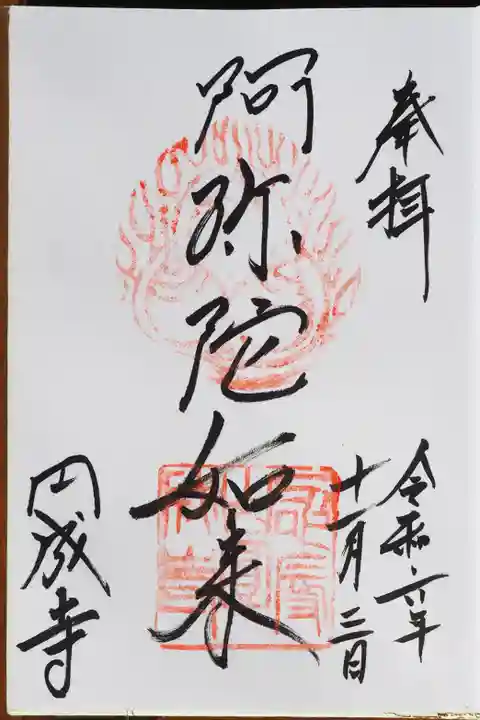 奉拝
令和六年
十一月三日
阿弥陀如来
円成寺